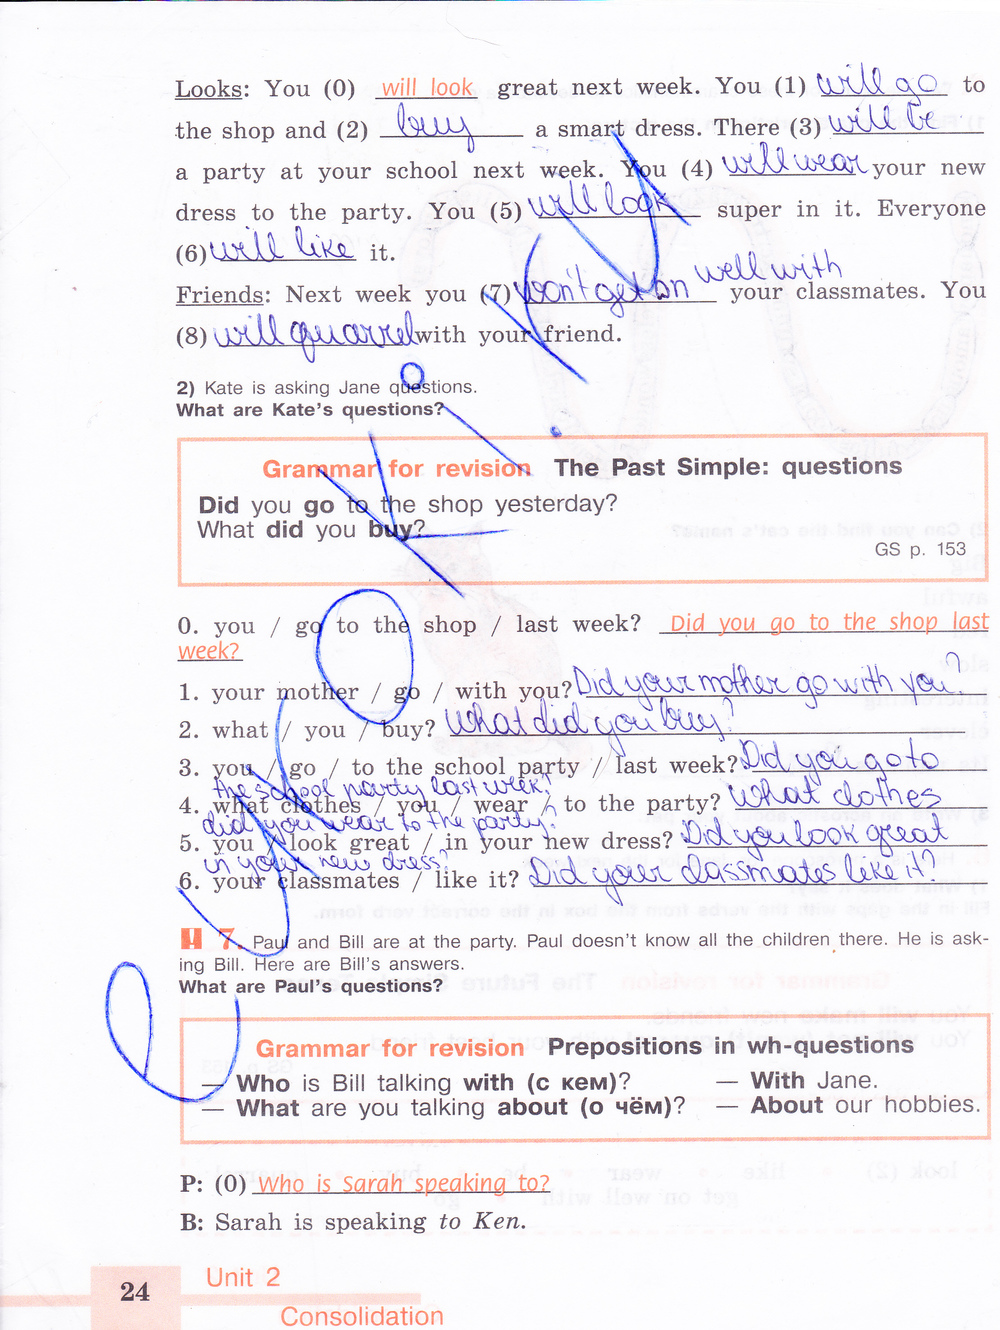 Looks: You (0) will look great next week. You (1) will go to
the shop and (2) buy a smart dress. There (3) will be
a party at your school next week. You (4) will wear your new
dress to the party. You (5) will look super in it. Everyone
(6) will like it.
Friends: Next week you (7) won't get on well with your classmates. You
(8) will quarrel with your friend.
2) Kate is asking Jane questions.
What are Kate's questions?
Grammar for revision The Past Simple: questions
Did you go to the shop yesterday?
What did you buy?
GS p. 153
0. you / go to the shop / last week? Did you go to the shop last
week?
1. your mother / go / with you? Did your mother go with you?
2. what / you / buy? What did you buy?
3. you / go / to the school party / last week? Did you go to
the school party last week?
4. what clothes / you / wear / to the party? What clothes
did you wear to the party?
5. you / look great / in your new dress? Did you look great
in your new dress?
6. your classmates / like it? Did your classmates like it?
7. Paul and Bill are at the party. Paul doesn't know all the children there. He is ask-
ing Bill. Here are Bill's answers.
What are Paul's questions?
Grammar for revision Prepositions in wh-questions
— Who is Bill talking with (с кем)? — With Jane.
— What are you talking about (о чём)? — About our hobbies.
P: (0) Who is Sarah speaking to?
B: Sarah is speaking to Ken.
24 Unit 2
Consolidation